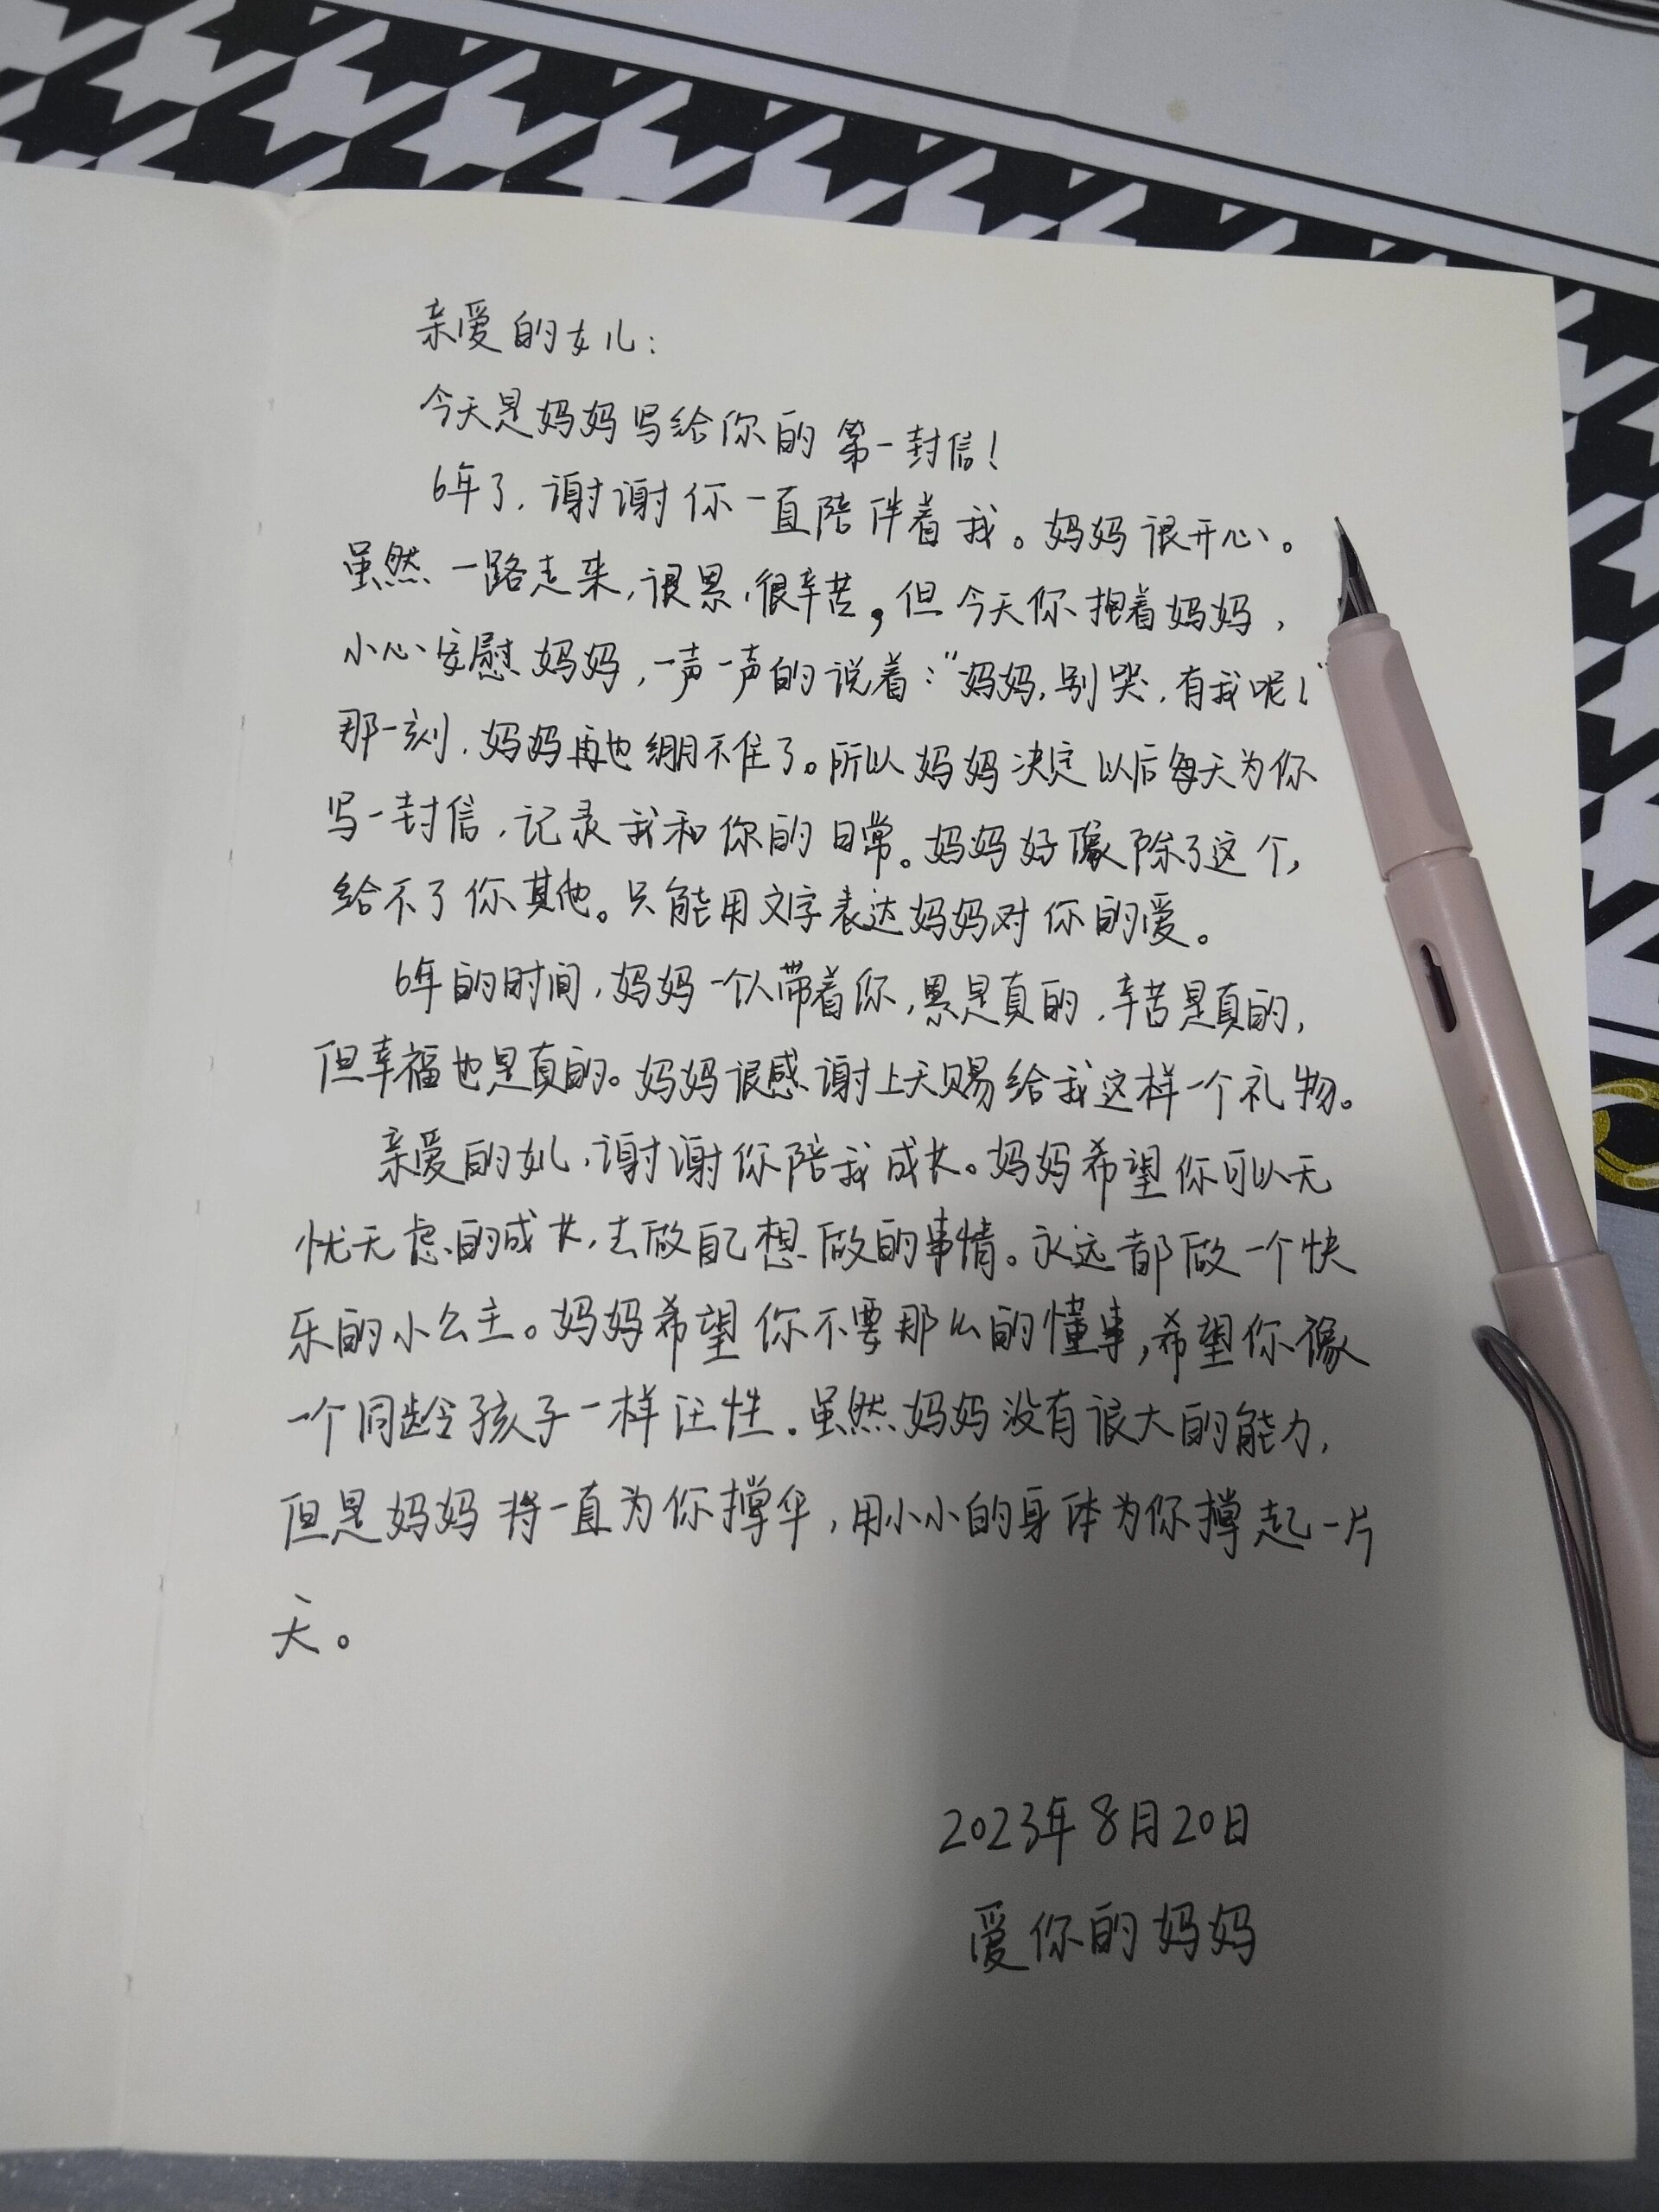 亲爱的女儿：
今天是妈妈写给你的第一封信！
6年了，谢谢你一直陪伴着我。妈妈很开心。
虽然一路走来，很累，很辛苦，但今天你抱着妈妈，
小心安慰妈妈，一声一声的说着："妈妈，别哭，有我呢！"
那一刻，妈妈再也绷不住了。所以妈妈决定以后每天为你
写一封信，记录我和你的日常。妈妈好像除了这个，
给不了你其他。只能用文字表达妈妈对你的爱。
6年的时间，妈妈一个人带着你，累是真的，辛苦是真的，
但幸福也是真的。妈妈很感谢上天赐给我这样一个礼物。
亲爱的女儿，谢谢你陪我成长。妈妈希望你可以无
忧无虑的成长，去做自己想做的事情。永远都做一个快
乐的小公主。妈妈希望你不要那么的懂事，希望你像
一个同龄孩子一样任性。虽然妈妈没有很大的能力，
但是妈妈将一直为你撑伞，用小小的身体为你撑起一片
天。
2023年8月20日
爱你的妈妈